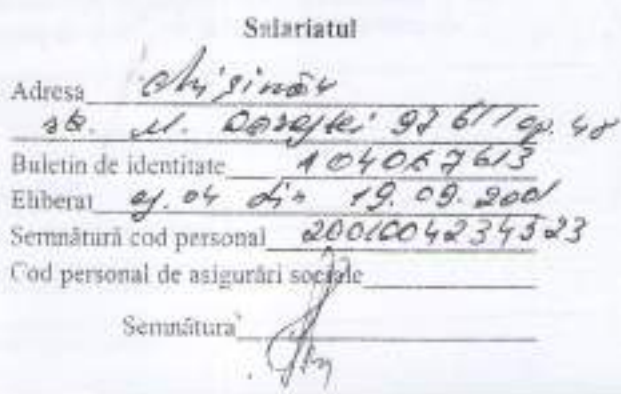 Salariatul
Adresa Chișinău
str. N. Costin 97 6/1 ap. 48
Buletin de identitate 104067613
Eliberat of. 04 din 19.09.2001
Semnătură cod personal 2001004234323
Cod personal de asigurări sociale
Semnătura